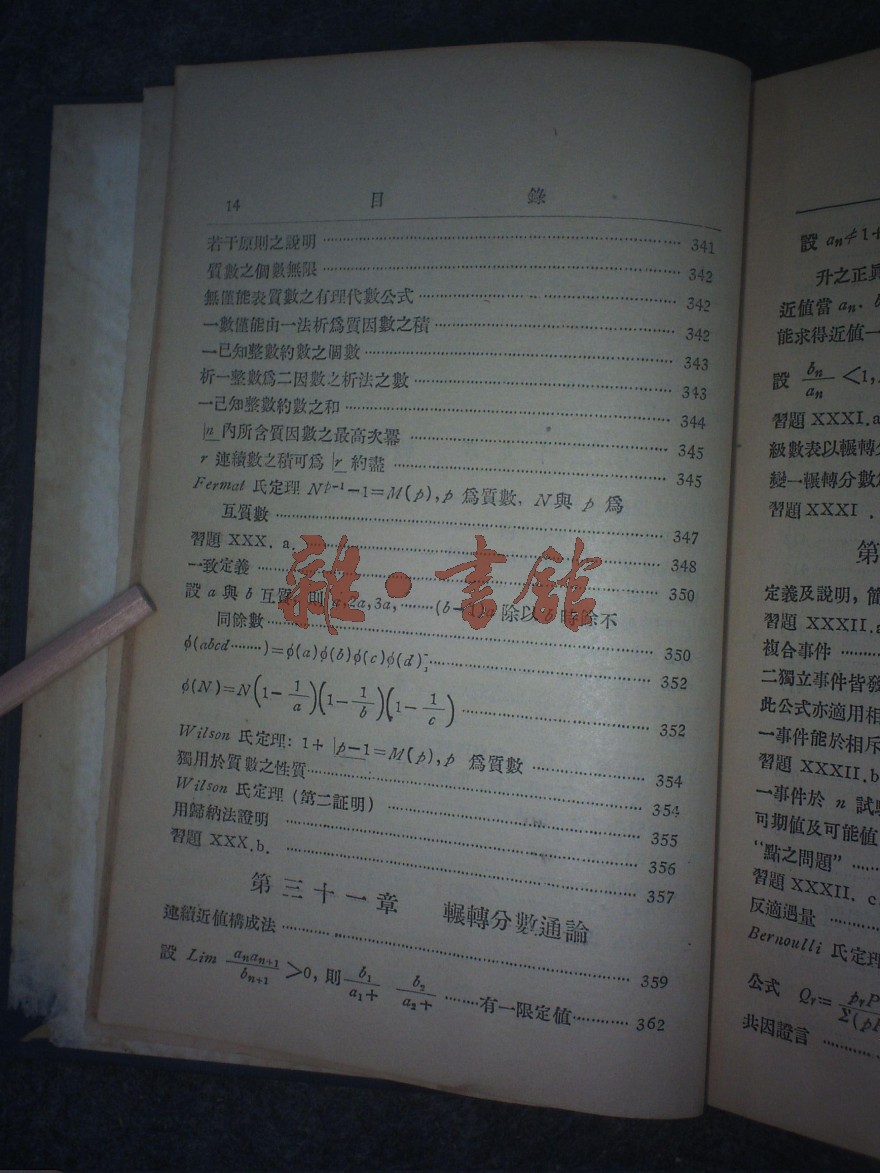 14 目 錄
若干原則之說明 341
質數之個數無限 342
無僅能表質數之有理代數公式 342
一數僅能由一法析爲質因數之積 342
一已知整數約數之個數 343
析一整數爲二因數之析法之數 343
一已知整數約數之和 344
|n 內所含質因數之最高次冪 345
r 連續數之積可爲 |r 約盡 345
Fermat 氏定理 N^{p-1}-1=M(p), p 爲質數, N與 p 爲
互質數 347
習題 XXX. a. 348
一致定義 350
設 a 與 b 互質, 則 a,2a,3a,……(b-1)a 除以 b 時除不
同餘數 350
φ(abcd……)=φ(a)φ(b)φ(c)φ(d) 352
φ(N)=N(1-1/a)(1-1/b)(1-1/c) 352
Wilson 氏定理: 1+|p-1=M(p), p 爲質數 354
獨用於質數之性質 354
Wilson 氏定理 (第二証明) 355
用歸納法證明 356
習題 XXX.b. 357
第三十一章 輾轉分數通論
連續近値構成法 359
設 Lim a_n a_{n+1}/b_{n+1} >0, 則 b_1/a_1+ b_2/a_2+ ……有一限定値 362
雜·書館
設 a_n≠1+
升之正
近値當 a_n. b
能求得近値一
設 b_n/a_n <1,
習題 XXXI.a
級數表以輾轉
變一輾轉分數
習題XXXI .
第
定義及說明, 簡
習題 XXXII.a
複合事件
二獨立事件皆發
此公式亦適用相
一事件能於相斥
習題 XXXII.b
一事件於 n 試
可期値及可能値
"點之問題"
習題 XXXII. c
反適遇量
Bernoulli 氏定理
公式 Q_r= p_rP/Σ(pP
共因證言